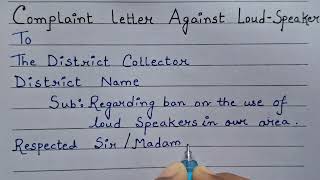 Complaint Letter Against Loud-Speaker
To
The District Collector
District Name
Sub: Regarding ban on the use of
loud Speakers in our area.
Respected Sir/Madam,